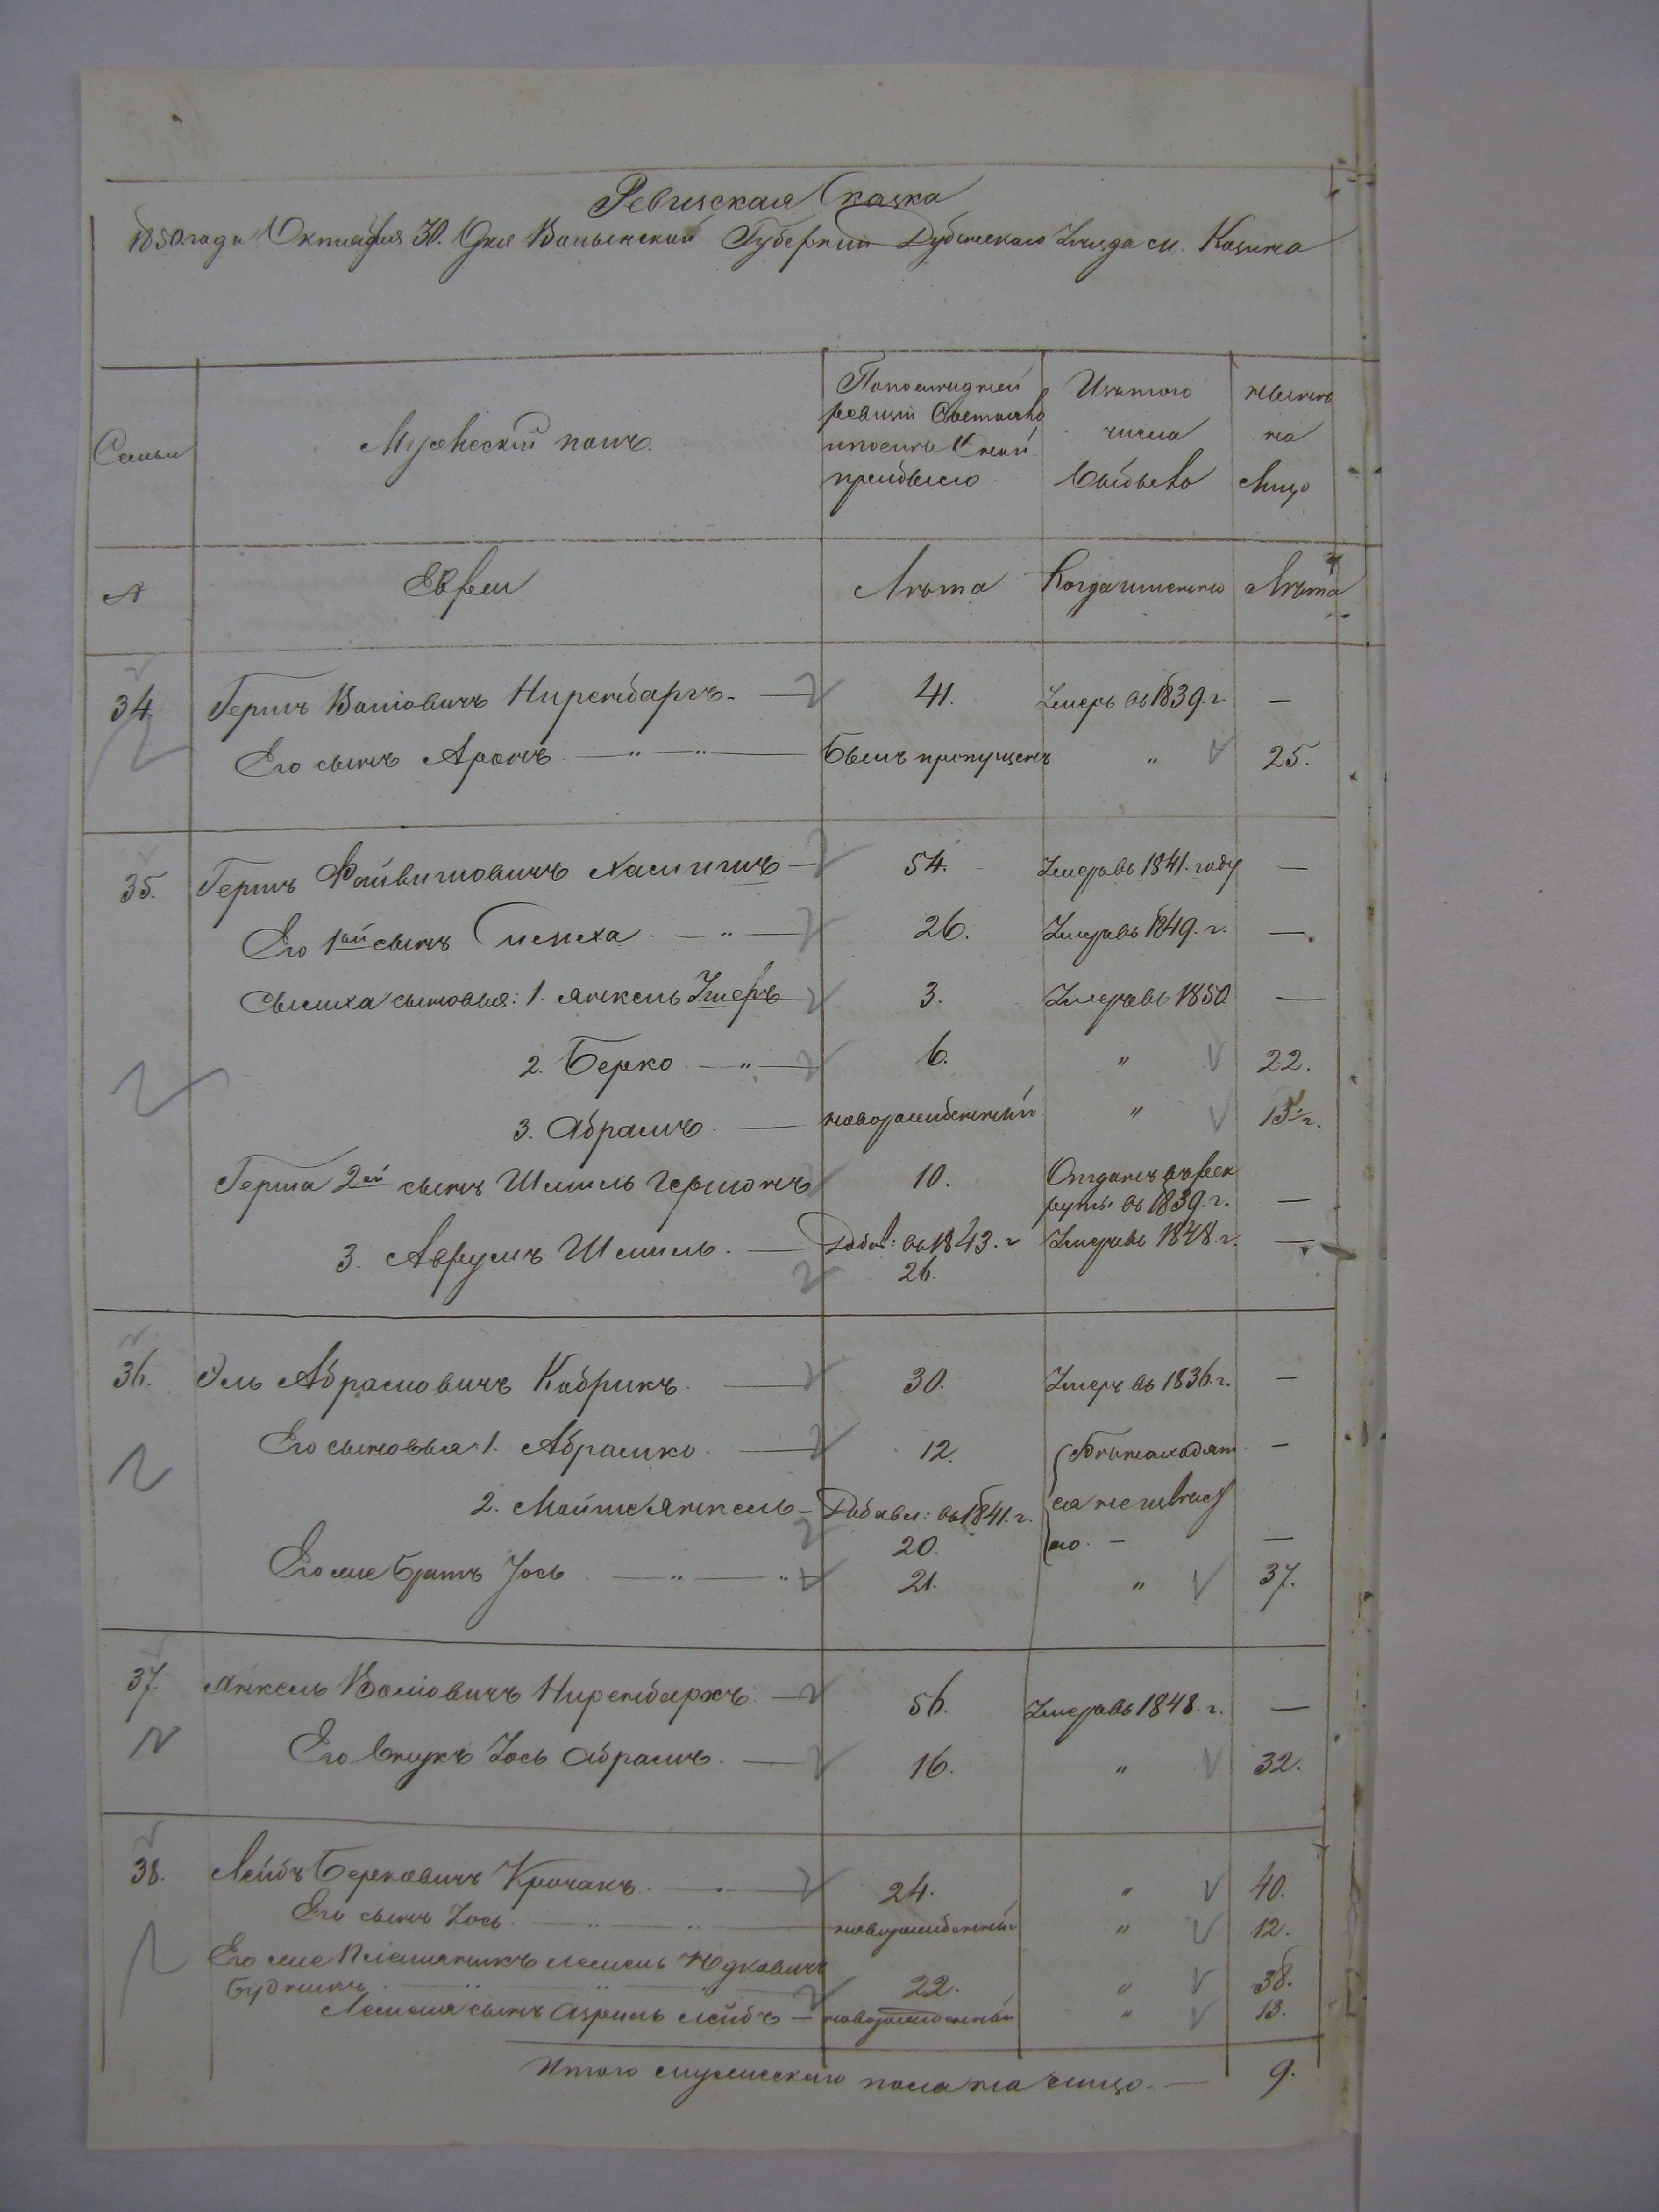 Ревизская Сказка
1850 года Октября 30. Дня Волынской Губернии Дубенскаго Уезда м. Козина
Семьи
Мужеский полъ.
По последней ревизии Состояло и после Оной прибыло
Изътого числа Выбыло
ныне на Лицо
№ Евреи Лѣта Когда именно Лѣта
34. Гершъ Волковичъ Ниренбаргъ. — 41. Умеръ въ 1839. г. —
Его сынъ Аронъ — " — " — Былъ пропущенъ " 25.
35. Гершъ Файвишовичъ — 54. Умеръ въ 1841. году —
Его 1ый сынъ — " — 26. Умеръ въ 1849. г. —.
сыновья: 1. Янкель Умеръ 3. Умеръ въ 1850 —
2. Берко — " — 6. " 22.
3. Абрамъ — новорожденный " 15 г.
Герша 2ой сынъ Шмиль Гершонъ 10. Отданъ въ рек
руты въ 1839. г. —
3. Аврумъ Шмиль. — Добав: въ 1843. г Умеръ въ 1848 г. —
26.
36. Эль Абрамовичъ Кобрикъ. — 30. Умеръ въ 1836 г. —
Его сыновья 1. Абрамко. — 12. —
2. Мойше Янкель — Добавл: въ 1841. г.
20. — —
Его же Братъ Іось — " — " 21. " 37.
37. Янкель Волковичъ Ниренбархъ. — 56. Умеръ въ 1848 г. —
Его Внукъ Іось Абрамъ. — 16. " 32.
38. Лейбъ Берковичъ Крочакъ. — 24. " 40.
Его сынъ Іось. — " — " новорожденный " 12.
Его же Племянникъ Юдковичъ
Будникъ. 22. " 38.
сынъ Азриль Лейбъ — новорожденный " 13.
Итого мужескаго пола на лицо. — 9.